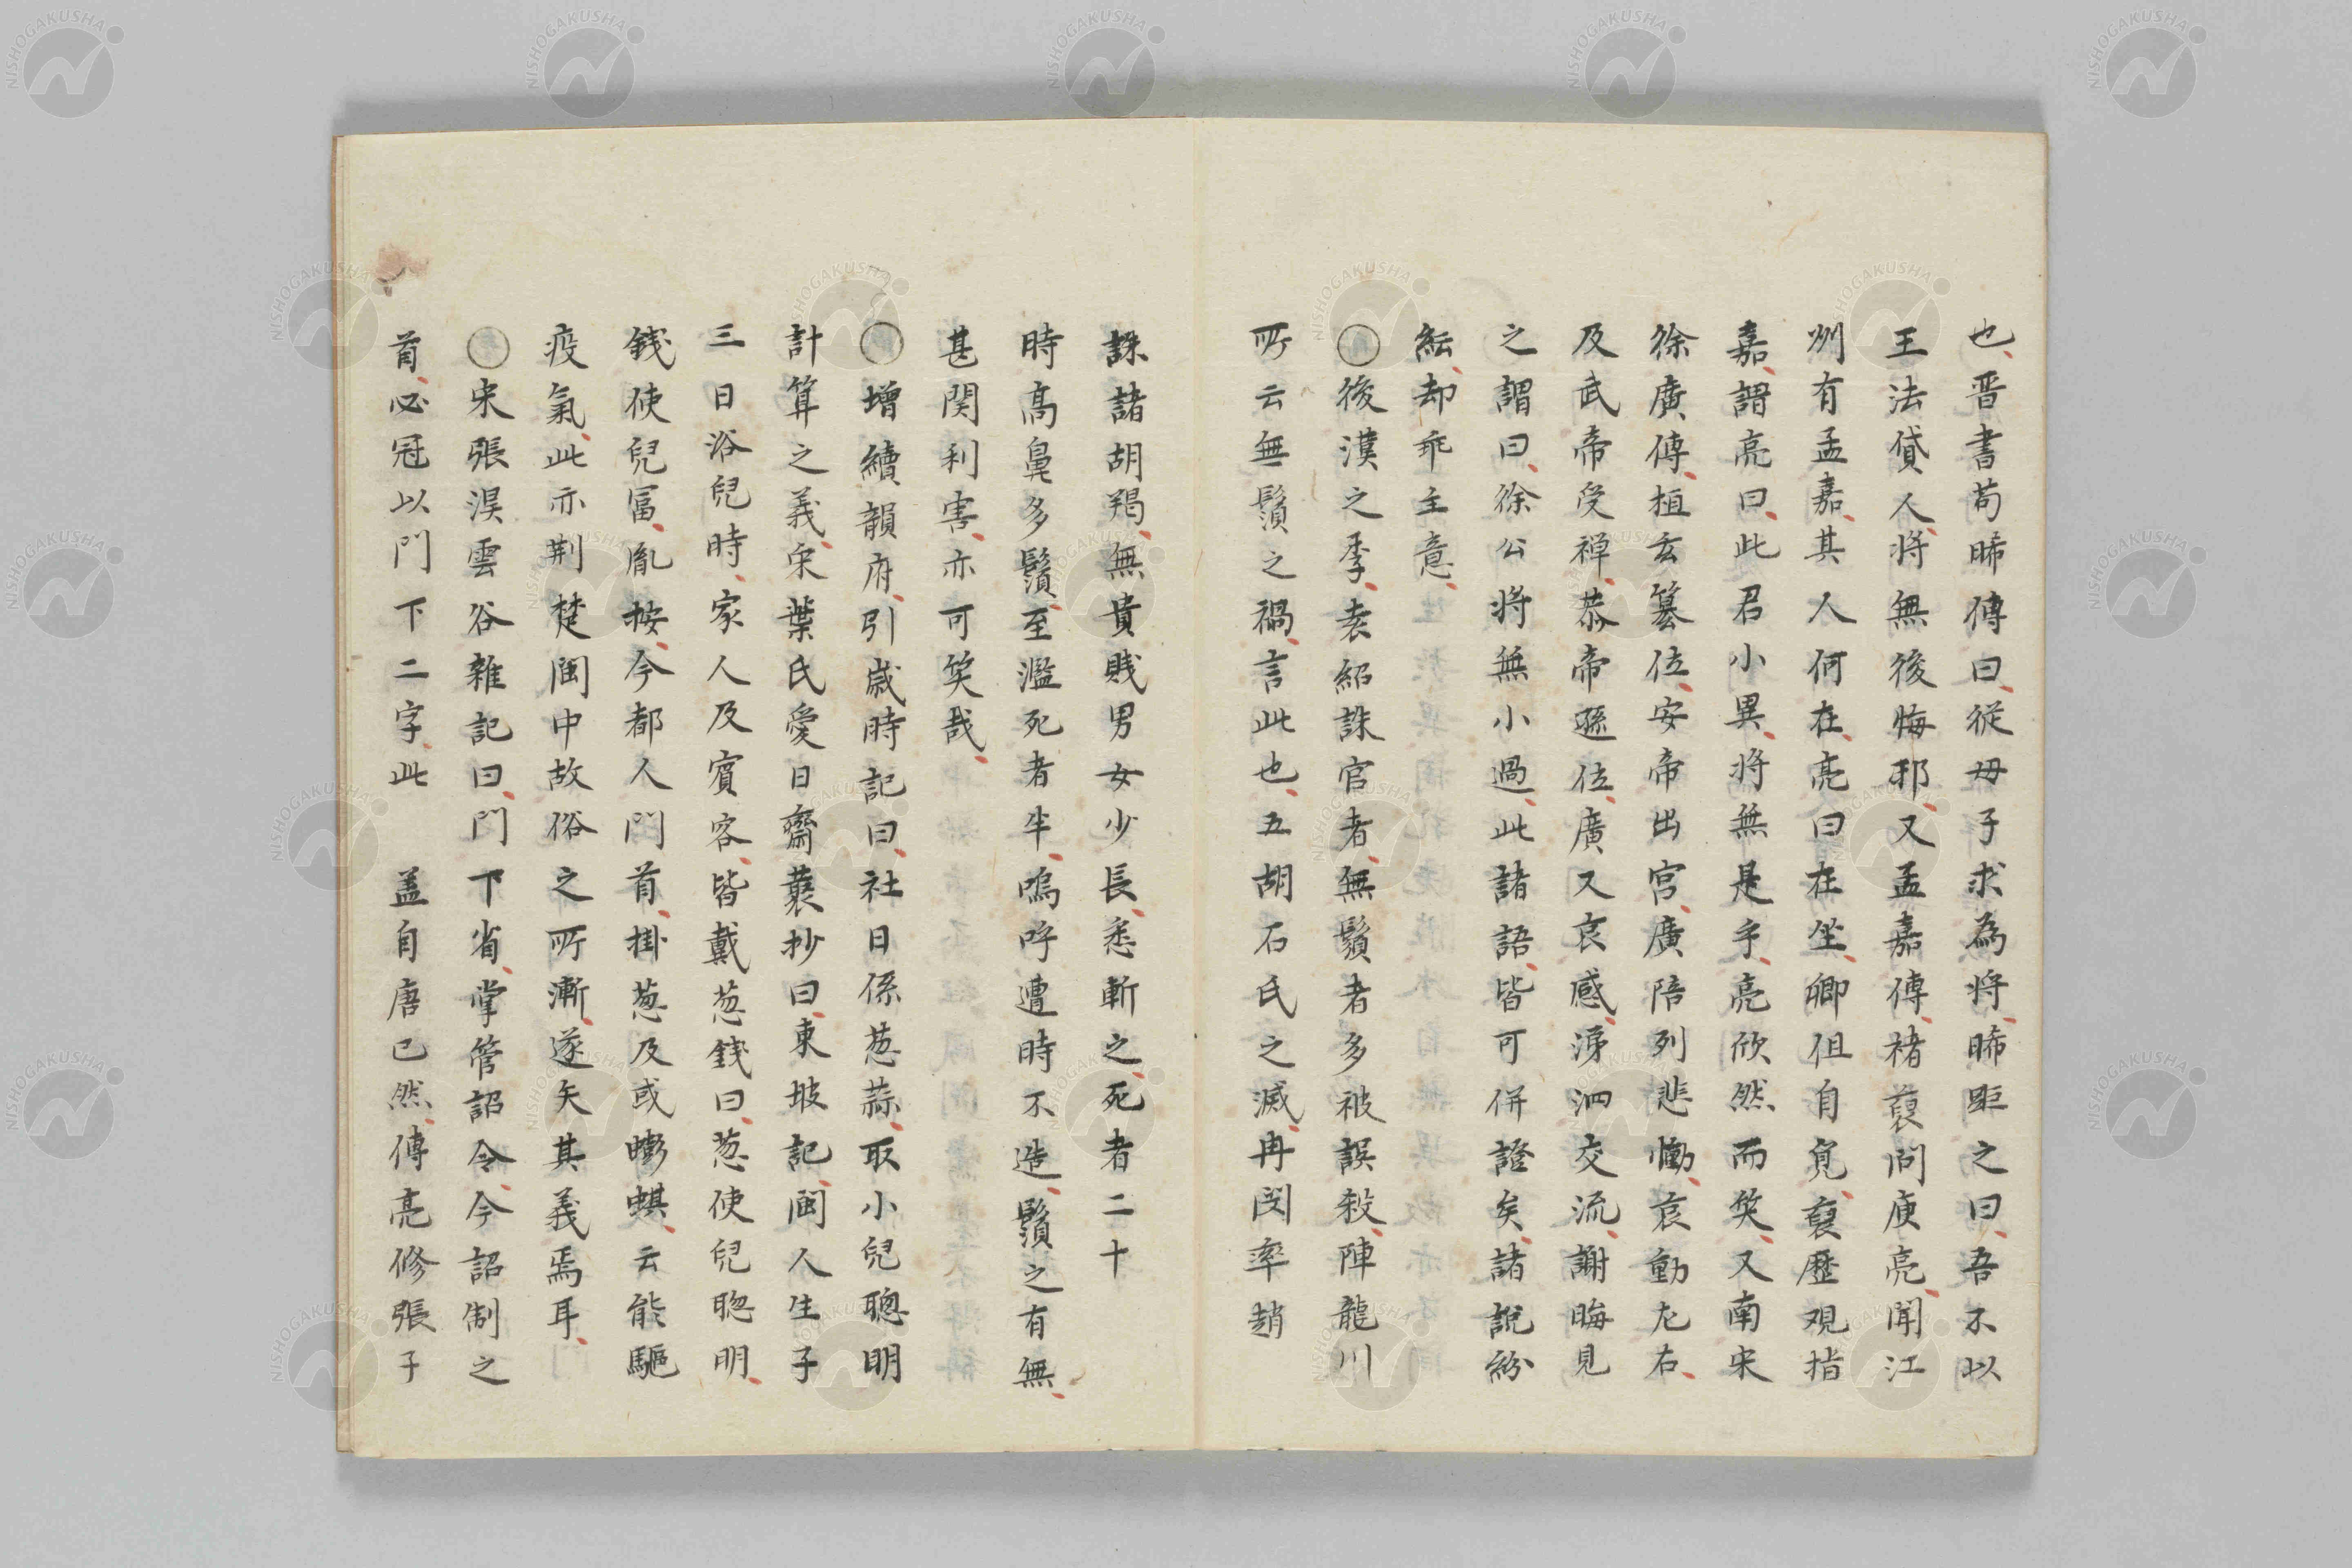 也、晋書荀晞傳曰、從母子求為將、晞距之曰、吾不以
王法貸人、將無後悔邪、又孟嘉傳、褚裒問庾亮、聞江
州有孟嘉、其人何在、亮曰在坐、卿但自覓、裒歷观指
嘉、謂亮曰、此君小異、將無是乎、亮欣然而笑、又南宋
徐廣傳、桓玄篡位、安帝出宮、廣陪列悲慟、哀動左右、
及武帝受禅、恭帝遜位、廣又哀感、涕泗交流、謝晦見
之謂曰、徐公將無小過、此諸語、皆可併證矣、諸説紛
紜、却乖主意、
○後漢之季、袁紹誅官者、無鬚者多被誤殺、陣龍川
所云無鬚之禍、言此也、五胡石氏之滅、冉閔率趙
誅諸胡羯、無貴賎男女少長、悉斬之、死者二十
時高鼻多鬚、至濫死者半、嗚呼遭時不造、鬚之有無、
甚関利害、亦可笑哉、
○増續韻府、引歳時記曰、社日係葱蒜、取小兒聰明
計算之義、宋葉氏愛日齋䕺抄曰、東坡記、閩人生子
三日浴兒時、家人及賓客、皆戴葱錢曰、葱使兒聰明、
錢使兒冨、胤按、今都人門首、掛葱及或蟛蜞、云能驅
疫氣、此亦荆楚閩中故俗之所漸、遂矢其義焉耳、
○宋張淏雲谷雜記曰、門下省、掌管詔令、今詔制之
首、必冠以門下二字、此 盖自唐已然、傅亮修張子